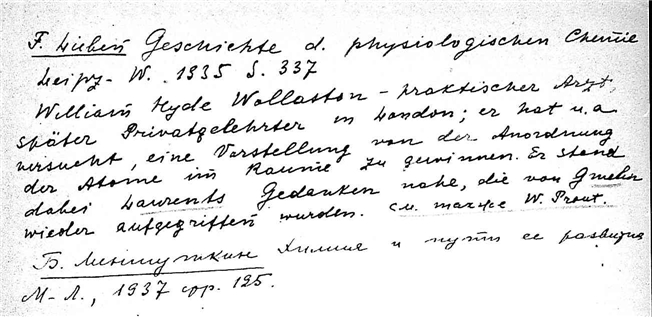 F. Lieben Geschichte d. physiologischen Chemie
Leipz.- W. 1935 S. 337
William Hyde Wollaston - praktischer Arzt,
später Privatgelehrter in London; er hat u. a
versucht, eine Vorstellung von der Anordnung
der Atome im Raume zu gewinnen. Er stand
dabei Laurents Gedanken nahe, die von Gmelin
wieder aufgegriffen wurden. см также W. Prout.
Б. Меншуткин Химия и пути ее развития
М-Л., 1937 стр. 125.